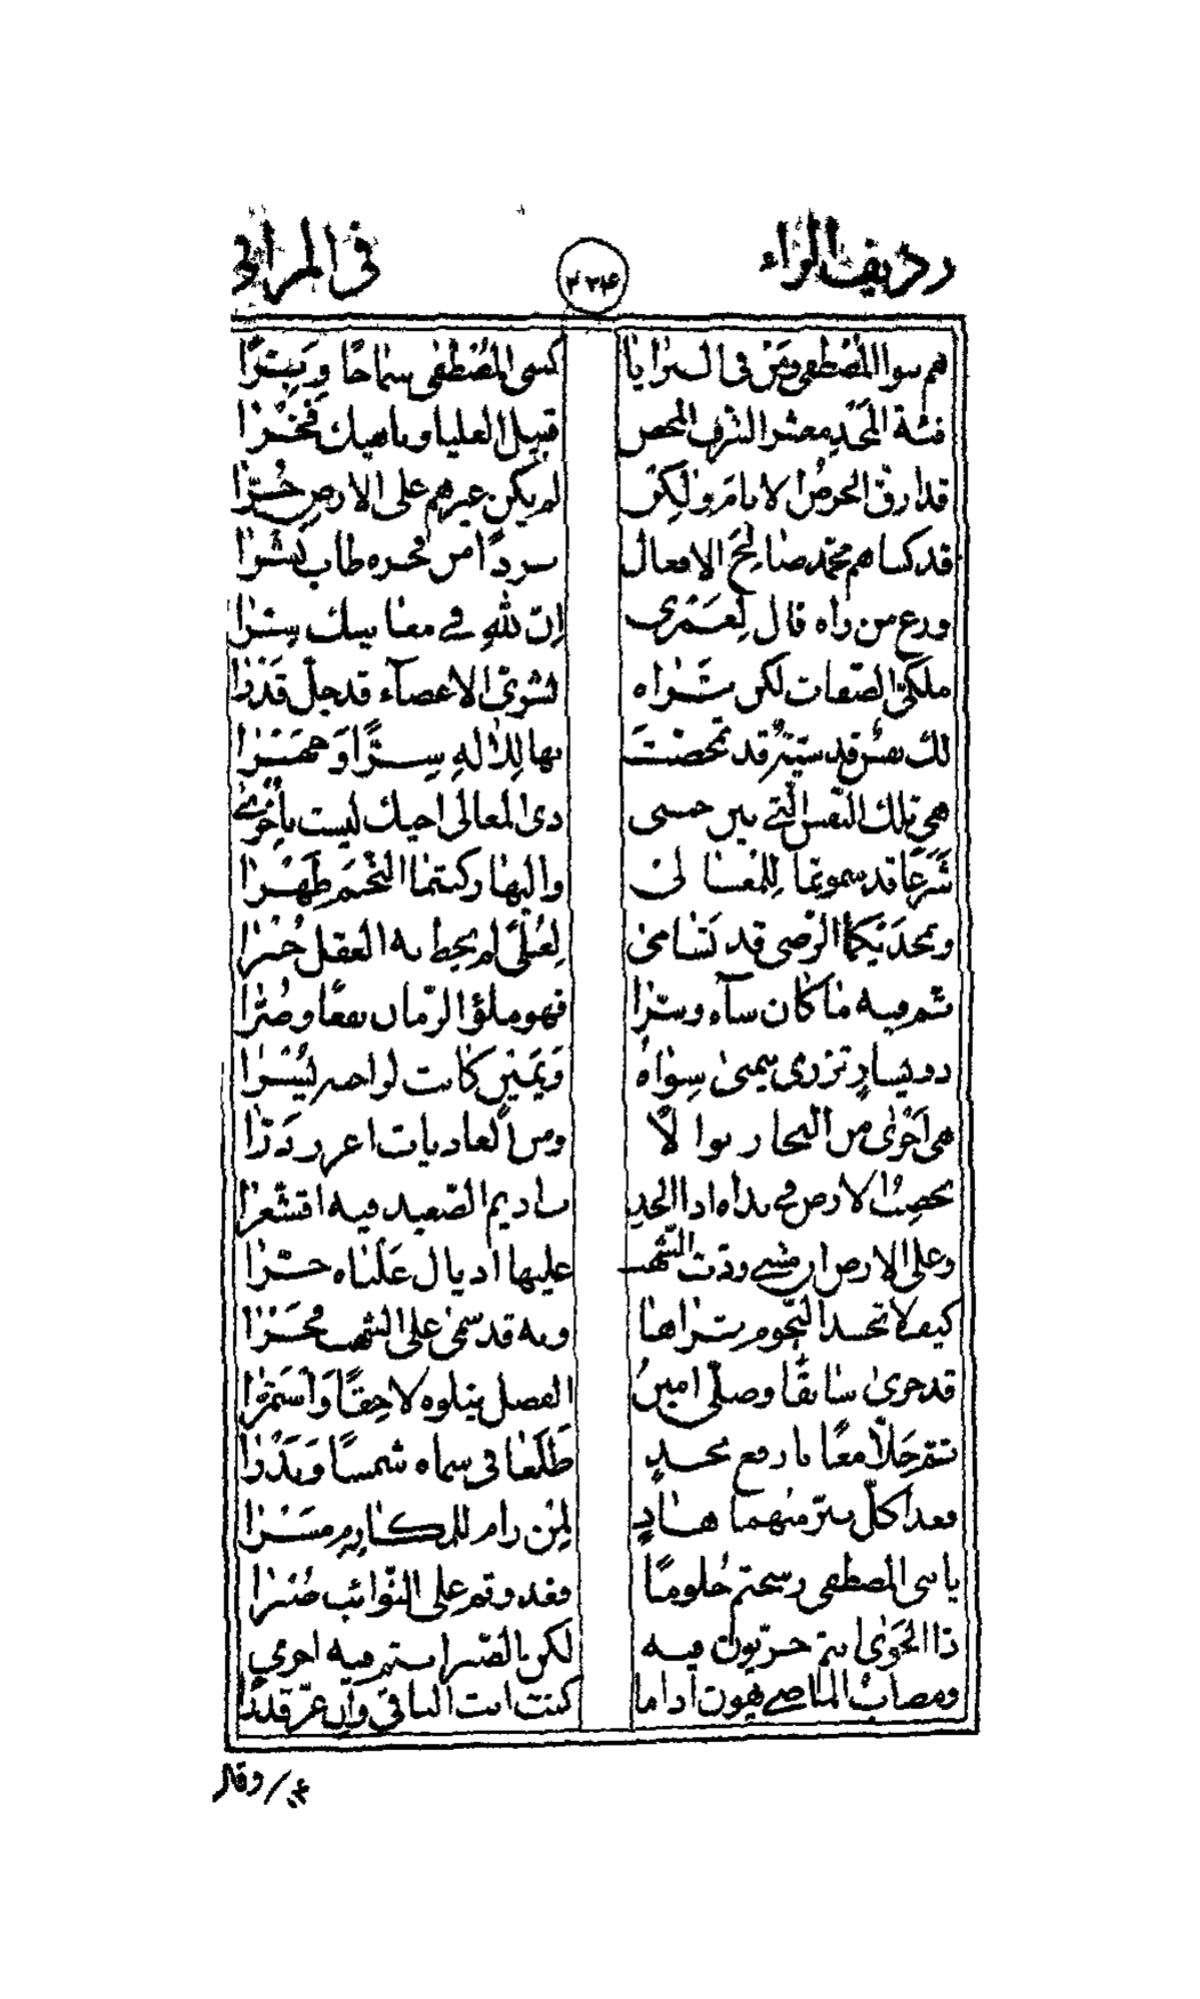 رديف الراء ٤٢٤ في المراثي
هم بنوا المصطفى ومن في البرايا كبني المصطفى سماحًا وبِرًّا
فئة المجد معشر الشرف المحض قبيل العليا وناهيك فَخْرا
قد ارق الحرصُ الانامَ ولكن لم يكن غيرهم على الارض حُرّا
قد كساهم محمد صالح الافعال بردًا من فخره طاب نشرا
ورع من رآه قال لعمري إنّ لله في معانيك سِرّا
ملكيّ الصفات لكن تراه بشريّ الاعضآء قد جلّ قَدْرا
لك نفس قدسيّة قد تمحضت بها للاله سِرًّا وجَهْرا
هي تلك النفس التي بين جنبي ذي المعالي اخيك ليست بأخرى
شَرَعًا قد سموتما للمعالي واليها ركبتما النجم ظَهْرا
وبمجديكما الرضى قد تسامى لعُلىً لم يحط به العقل خُبْرا
ثم فيه ما كان سآء وسرّا فهو ملؤ الزمان نفعًا وضُرّا
ذو يسارٍ تزري بيمنى سواه ويمينٍ كانت لراجيه يُسْرا
هي أجرى من البحار نوالاً ومن الغاديات اغزر دَرّا
يخصب الارض في نداه اذا الجدب اديم الصعيد فيه اقشعرّا
وعلى الارض ان مشى ودّت الشهب عليها اذيال علياه جَرّا
كيف لا تحسد النجوم ثراها وبه قد سمى على الشهب فخرا
قد جرى سابقًا وصلّى امين الفضل يتلوه لاحقًا واستمرّا
نتفرجلا معًا بارفع مجدٍ طلعا في سماه شمسًا وبَدْرا
فغدا كلّ نيّر منهما هادٍ لمن رام للمكارم مسرى
يا بني المصطفى رسختم حلومًا وغدوتم على النوائب صُبْرا
ذا الجوى انتم حريّون فيه لكن الصبر انتم فيه احرى
ومصاب الماضي يهون اذا ما كنت انت الباقي وان عزّ قدرا
وقال